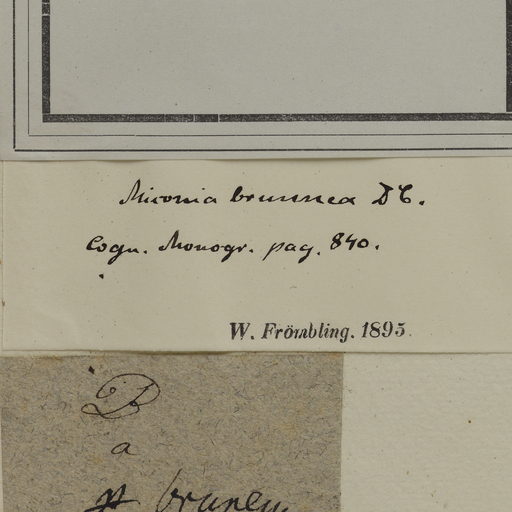 Miconia brunnea DC.
Cogn. Monogr. pag. 840.
W. Frömbling. 1895.
B
a